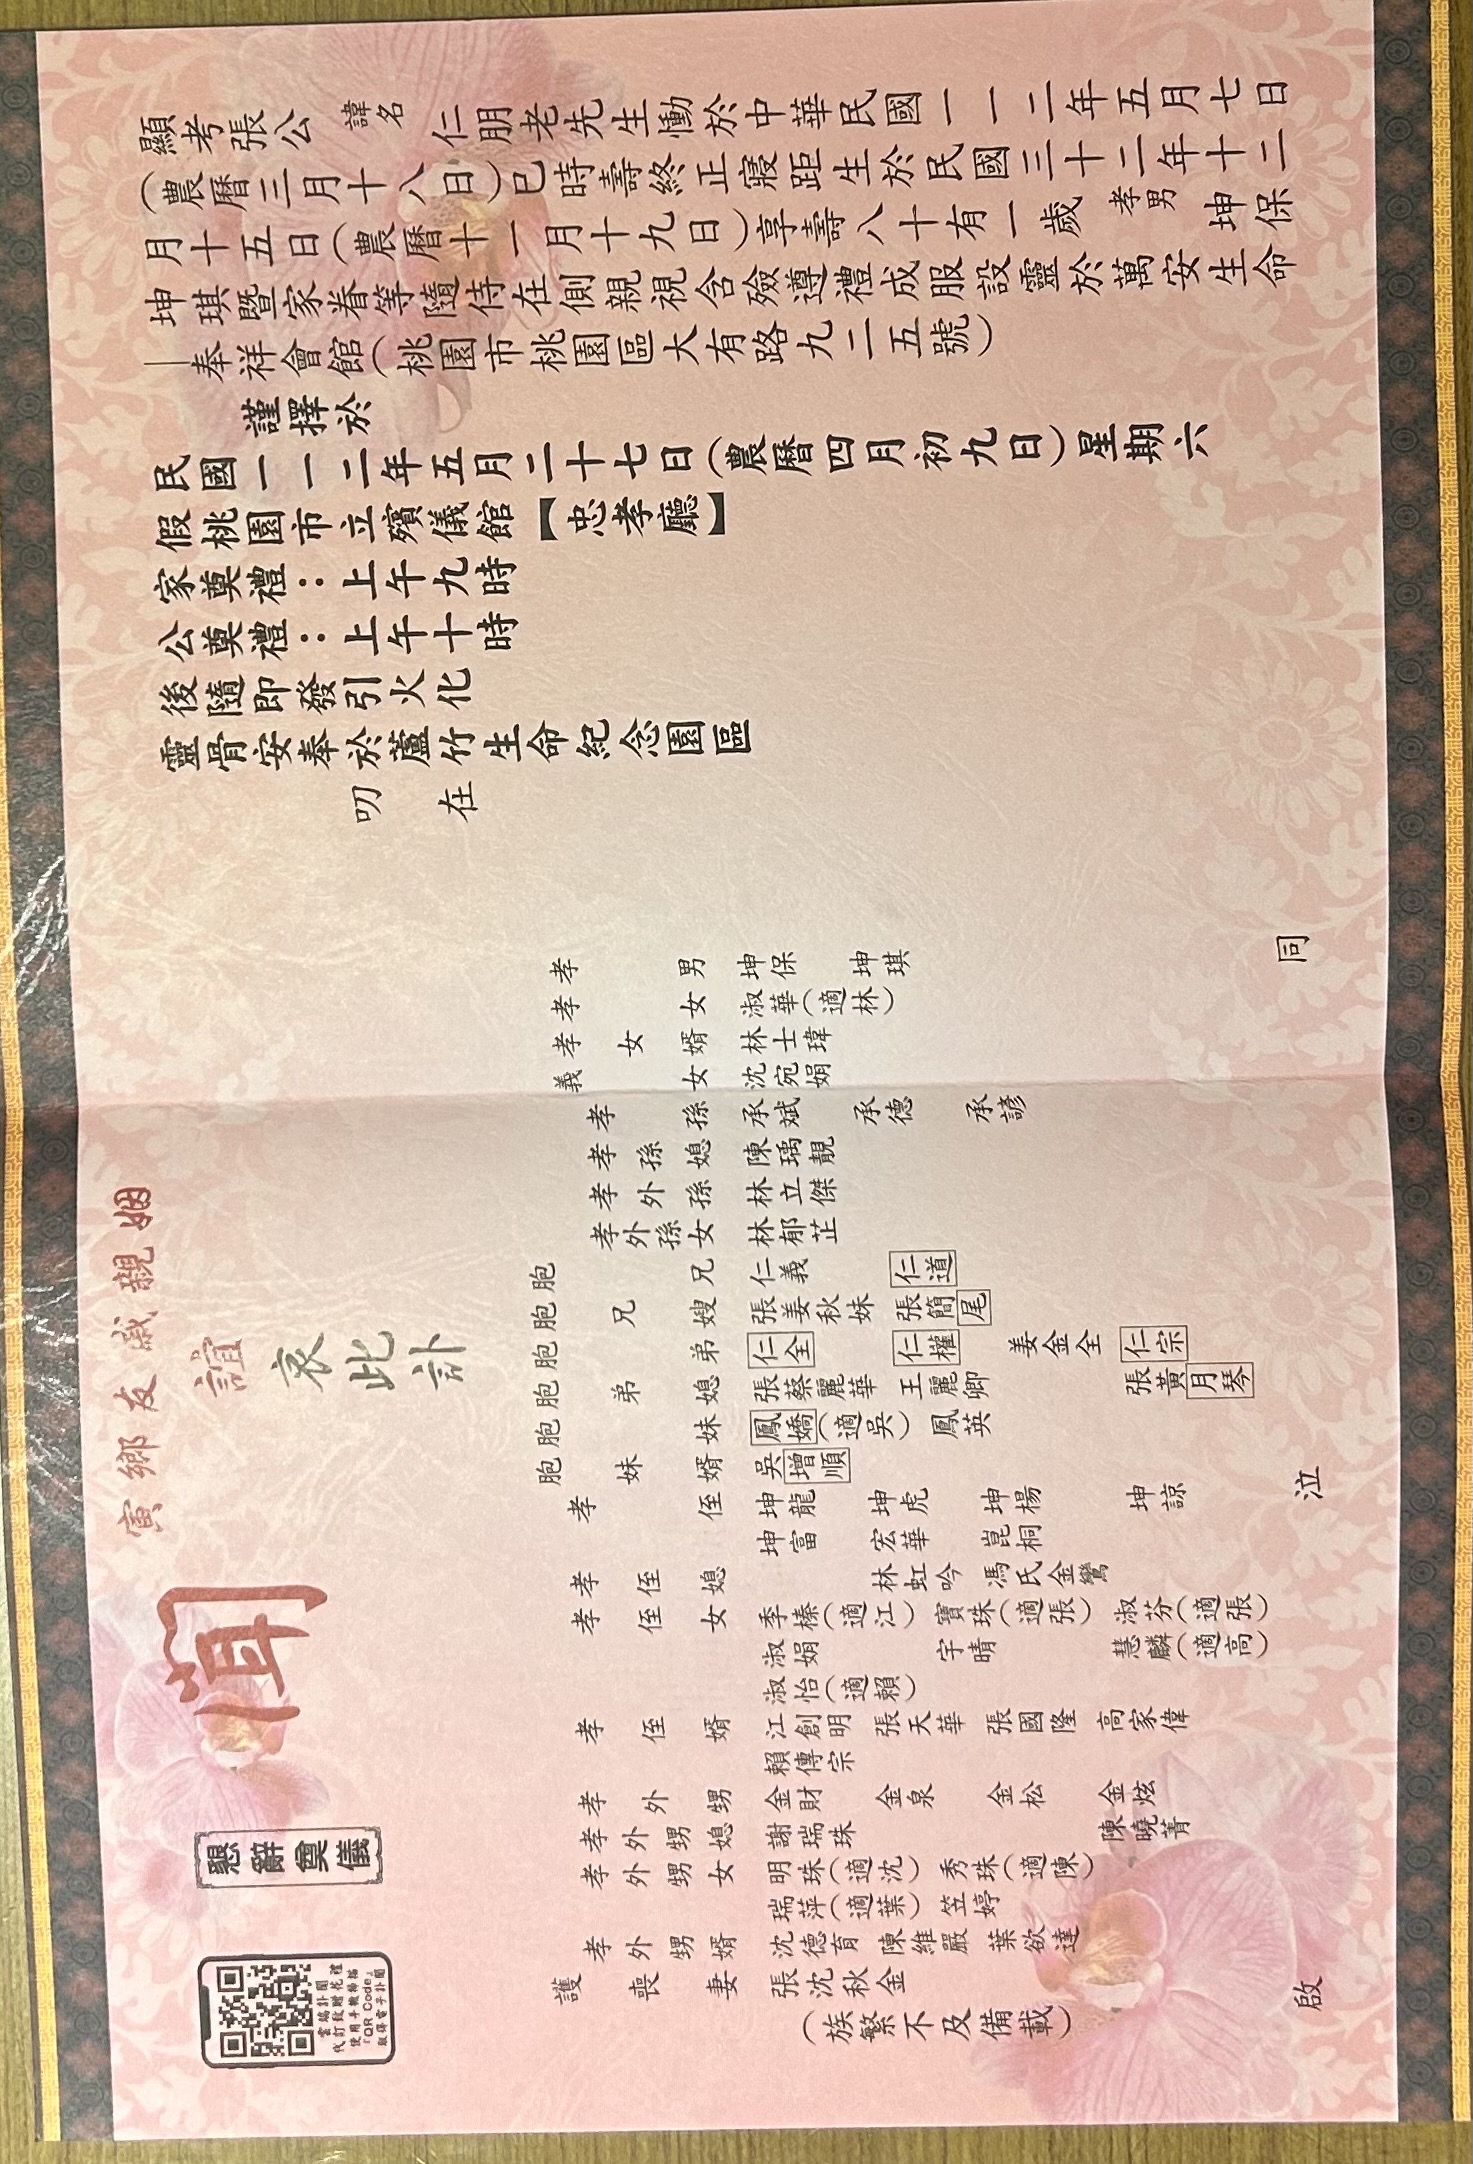 顯考張公諱名仁朋老先生慟於中華民國一一二年五月七日
(農曆三月十八日)巳時壽終正寢距生於民國三十二年十二
月十五日(農曆十一月十九日)享壽八十有一歲 孝男 坤保
坤琪暨家眷等隨侍在側親視含殮遵禮成服設靈於萬安生命
│奉祥會館(桃園市桃園區大有路九二五號)
謹擇於
民國一一二年五月二十七日(農曆四月初九日)星期六
假桃園市立殯儀館【忠孝廳】
家奠禮:上午九時
公奠禮:上午十時
後隨即發引火化
靈骨安奉於蘆竹生命紀念園區
叨 在
寅鄉友戚親姻
誼
哀此訃
聞
懇辭奠儀
孝男 坤保 坤琪
孝女 淑華(適林)
孝女婿 林士瑋
義女 沈宛娟
孝孫 承斌 承德 承諺
孝孫媳 陳瑀靚
孝外孫 林立傑
孝外孫女 林郁芷
胞兄 仁義 仁道
胞兄嫂 張姜秋妹 張簡尾
胞弟 仁全 仁權 姜金全 仁宗
胞弟媳 張蔡麗華 王麗卿 張黃月琴
胞妹 鳳嬌(適吳) 鳳英
胞妹婿 吳增順
孝侄 坤龍 坤虎 坤楊 坤諒
坤富 宏華 崑桐
孝侄媳 林虹吟 馮氏金鸞
孝侄女 季榛(適江) 寶珠(適張) 淑芬(適張)
淑娟 宇晴 慧麟(適高)
淑怡(適賴)
孝侄婿 江創明 張天華 張國隆 高家偉
賴傳宗
孝外甥 金財 金泉 金松 金炫
孝外甥媳 謝瑞珠 陳曉菁
孝外甥女 明珠(適沈) 秀珠(適陳)
瑞萍(適葉) 笠婷
孝外甥婿 沈德育 陳維嚴 葉欲達
護喪妻 張沈秋金
(族繁不及備載)
同 泣 啟
當訃聞
代訂致贈花禮
使用手機掃描
「QR Code」
取得電子訃聞